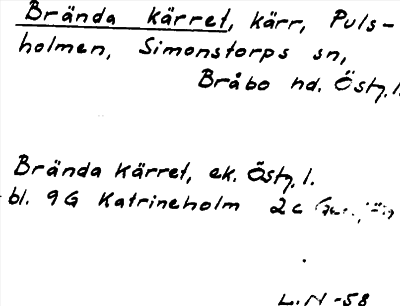 Brända kärret, kärr, Puls-
holmen, Simonstorps sn,
Bråbo hd. Östg. l.
Brända kärret, ek. Östg. l.
bl. 9G Katrineholm 2c
L.N -58